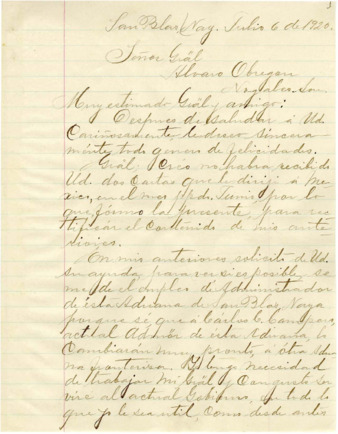 San Blas, Nay. Julio 6 de 1920.
Señor Grâl
Alvaro Obregon
Nogales, Son.
Muy estimado Grâl y amigo:
Despues de saludar á Ud.
Cariñosamente, le deseo sincera
mente, todo genero de felicidades.
Grâl, Creo no habra recibido
Ud. dos Cartas que le dirijí á Me
xico, en el mes ppdo. Junio, por lo
que formo la presente, para rec
tificar el Contenido de mis ante
riores.
En mis anteriores solicito de Ud.
su ayuda, para ver si es posible, se
me dé el empleo de Administrador
de esta Aduana de San Blas, Naya
porque sé que á Carlos G. Campos,
actual Admor de esta Aduana, lo
Cambiarán muy pronto, á otra Adua
na fronteriza. Yo tengo necesidad
de trabajar Mi Grâl y Con gusto ser
viré al actual Gobierno, en todo lo
que yo le sea util, Como desde antes